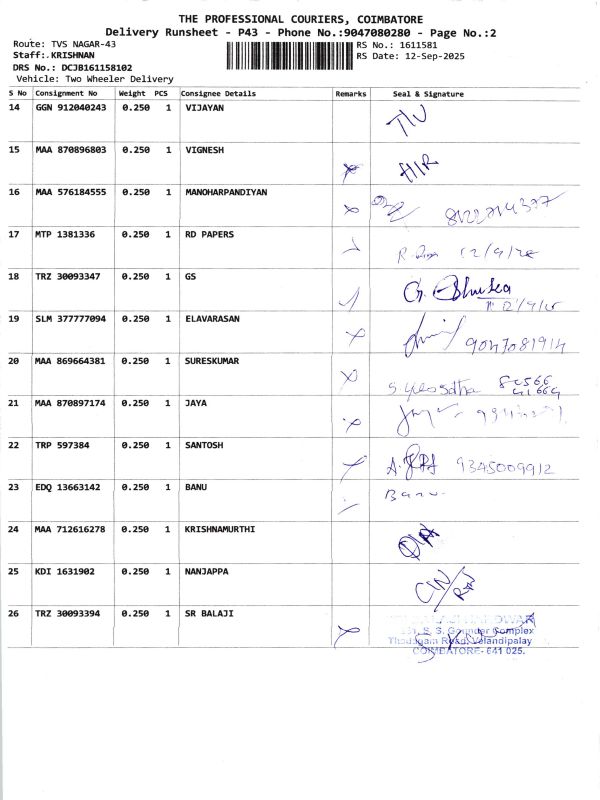 THE PROFESSIONAL COURIERS, COIMBATORE
Delivery Runsheet - P43 - Phone No.:9047080280 - Page No.:2
Route: TVS NAGAR-43 RS No.: 1611581
Staff:.KRISHNAN RS Date: 12-Sep-2025
DRS No.: DCJB161158102
Vehicle: Two Wheeler Delivery
S No Consignment No Weight PCS Consignee Details Remarks Seal & Signature
14 GGN 912040243 0.250 1 VIJAYAN
15 MAA 870896803 0.250 1 VIGNESH
16 MAA 576184555 0.250 1 MANOHARPANDIYAN
17 MTP 1381336 0.250 1 RD PAPERS
18 TRZ 30093347 0.250 1 GS
19 SLM 377777094 0.250 1 ELAVARASAN 9047081914
20 MAA 869664381 0.250 1 SURESKUMAR
21 MAA 870897174 0.250 1 JAYA
22 TRP 597384 0.250 1 SANTOSH 9345009912
23 EDQ 13663142 0.250 1 BANU Banu
24 MAA 712616278 0.250 1 KRISHNAMURTHI
25 KDI 1631902 0.250 1 NANJAPPA
26 TRZ 30093394 0.250 1 SR BALAJI
S. S. Gounder Complex
Thadagam Road, Velandipalay
COIMBATORE- 641 025.